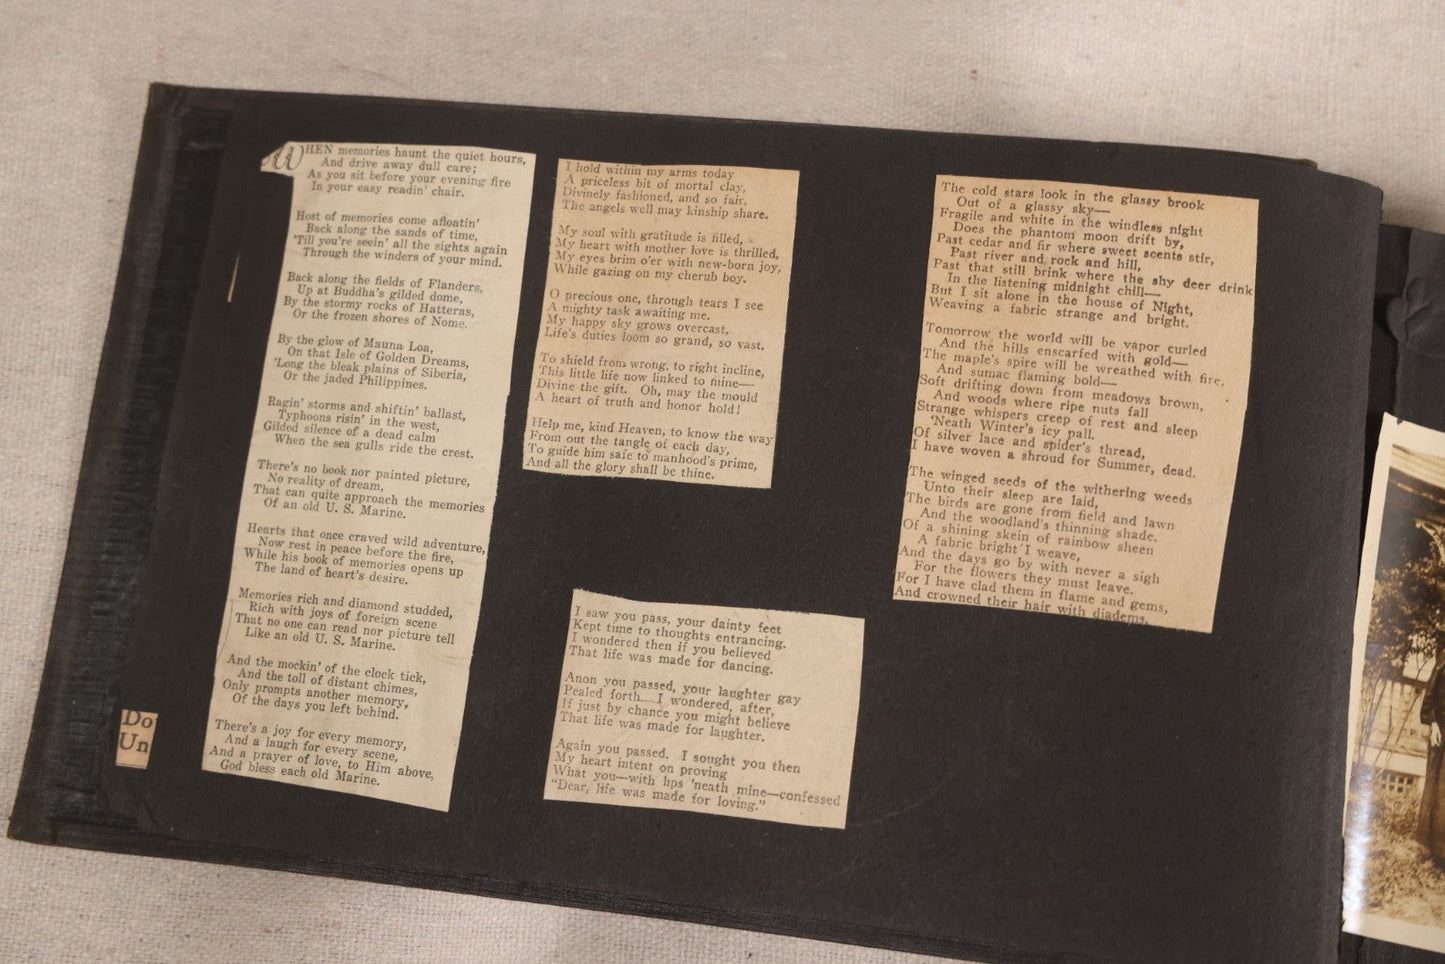 WHEN memories haunt the quiet hours,
And drive away dull care;
As you sit before your evening fire
In your easy readin' chair.
Host of memories come afloatin'
Back along the sands of time,
'Till you're seein' all the sights again
Through the winders of your mind.
Back along the fields of Flanders,
Up at Buddha's gilded dome,
By the stormy rocks of Hatteras,
Or the frozen shores of Nome.
By the glow of Mauna Loa,
On that Isle of Golden Dreams,
'Long the bleak plains of Siberia,
Or the jaded Philippines.
Ragin' storms and shiftin' ballast,
Typhoons risin' in the west,
Gilded silence of a dead calm
When the sea gulls ride the crest.
There's no book nor painted picture,
No reality of dream,
That can quite approach the memories
Of an old U. S. Marine.
Hearts that once craved wild adventure,
Now rest in peace before the fire,
While his book of memories opens up
The land of heart's desire.
Memories rich and diamond studded,
Rich with joys of foreign scene
That no one can read nor picture tell
Like an old U. S. Marine.
And the mockin' of the clock tick,
And the toll of distant chimes,
Only prompts another memory,
Of the days you left behind.
There's a joy for every memory,
And a laugh for every scene,
And a prayer of love, to Him above,
God bless each old Marine.
Do
Un
I hold within my arms today
A priceless bit of mortal clay,
Divinely fashioned, and so fair,
The angels well may kinship share.
My soul with gratitude is filled,
My heart with mother love is thrilled,
My eyes brim o'er with new-born joy,
While gazing on my cherub boy.
O precious one, through tears I see
A mighty task awaiting me.
My happy sky grows overcast,
Life's duties loom so grand, so vast.
To shield from wrong, to right incline,
This little life now linked to mine—
Divine the gift. Oh, may the mould
A heart of truth and honor hold!
Help me, kind Heaven, to know the way
From out the tangle of each day,
To guide him safe to manhood's prime,
And all the glory shall be thine.
I saw you pass, your dainty feet
Kept time to thoughts entrancing.
I wondered then if you believed
That life was made for dancing.
Anon you passed, your laughter gay
Pealed forth—I wondered, after,
If just by chance you might believe
That life was made for laughter.
Again you passed. I sought you then
My heart intent on proving
What you—with lips 'neath mine—confessed
"Dear, life was made for loving."
The cold stars look in the glassy brook
Out of a glassy sky—
Fragile and white in the windless night
Does the phantom moon drift by,
Past cedar and fir where sweet scents stir,
Past river and rock and hill,
Past that still brink where the shy deer drink
In the listening midnight chill—
But I sit alone in the house of Night,
Weaving a fabric strange and bright.
Tomorrow the world will be vapor curled
And the hills enscarfed with gold—
The maple's spire will be wreathed with fire,
And sumac flaming bold—
Soft drifting down from meadows brown,
And woods where ripe nuts fall
Strange whispers creep of rest and sleep
'Neath Winter's icy pall.
Of silver lace and spider's thread,
I have woven a shroud for Summer, dead.
The winged seeds of the withering weeds
Unto their sleep are laid,
The birds are gone from field and lawn
And the woodland's thinning shade.
Of a shining skein of rainbow sheen
A fabric bright I weave,
And the days go by with never a sigh
For the flowers they must leave.
For I have clad them in flame and gems,
And crowned their hair with diadems.